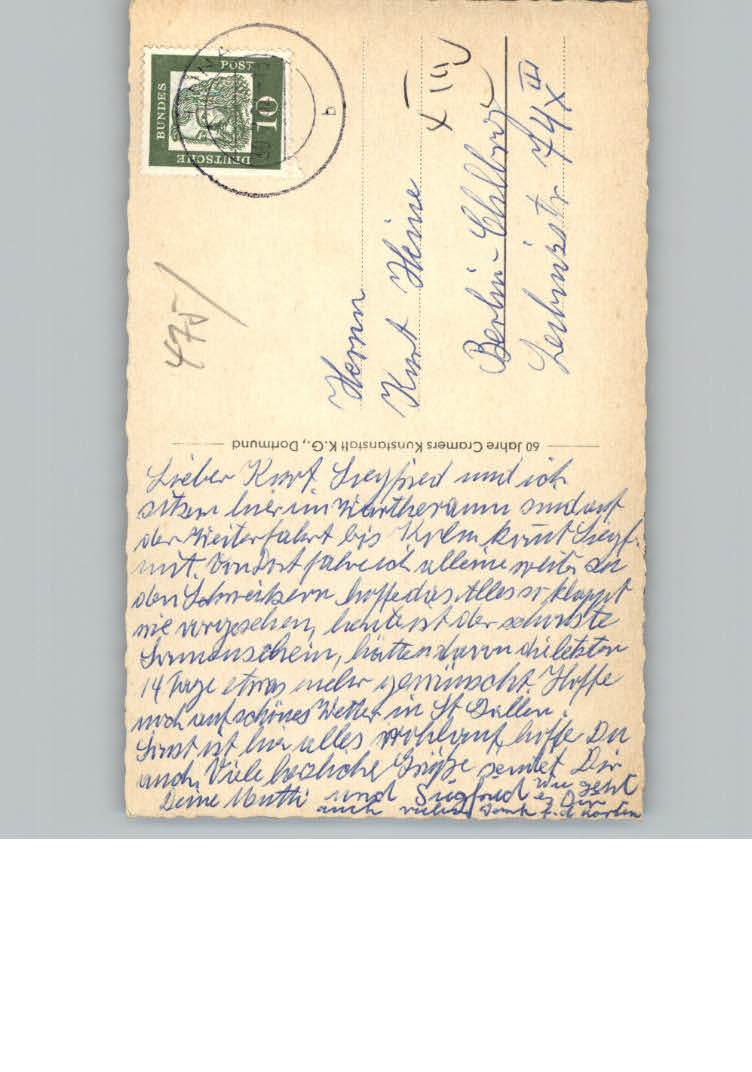 Lieber Kurt. Siegfried und ich
sitzen hier im Warteraum sind auf
der Weiterfahrt bis Köln kommt Siegf.
mit. Von Dort fahre ich alleine weiter zu
den Schweizern hoffe das Alles so klappt
wie vorgesehen, heute ist der schönste
Sonnenschein, hätten davon die letzten
14 Tage etwas mehr gewünscht. Hoffe
noch auf schönes Wetter in St Gallen.
Sonst ist hier alles wohlauf, hoffe Du
auch. Viele herzliche Grüße sendet Dir
Deine Mutti und Siegfried Wie geht
es Dir
auch vielen Dank f. d. Karten
60 Jahre Cramers Kunstanstalt K.G., Dortmund
Herrn
Kurt Heine
Berlin-Chlbrg
74 X III
X IV
475/
DEUTSCHE
BUNDES
POST
10
b